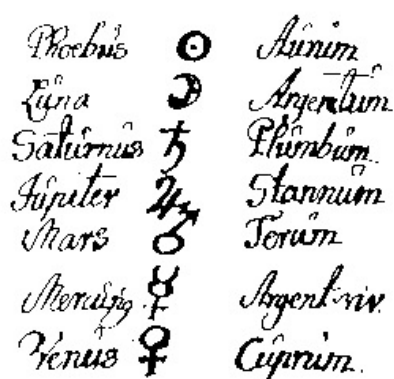 Phoebus ☉ Aurum
Luna ☽ Argentum
Saturnus ♄ Plumbum.
Jupiter ♃ Stannum
Mars ♂ Ferum
Mercurig ☿ Argent viv.
Venus ♀ Cuprum.